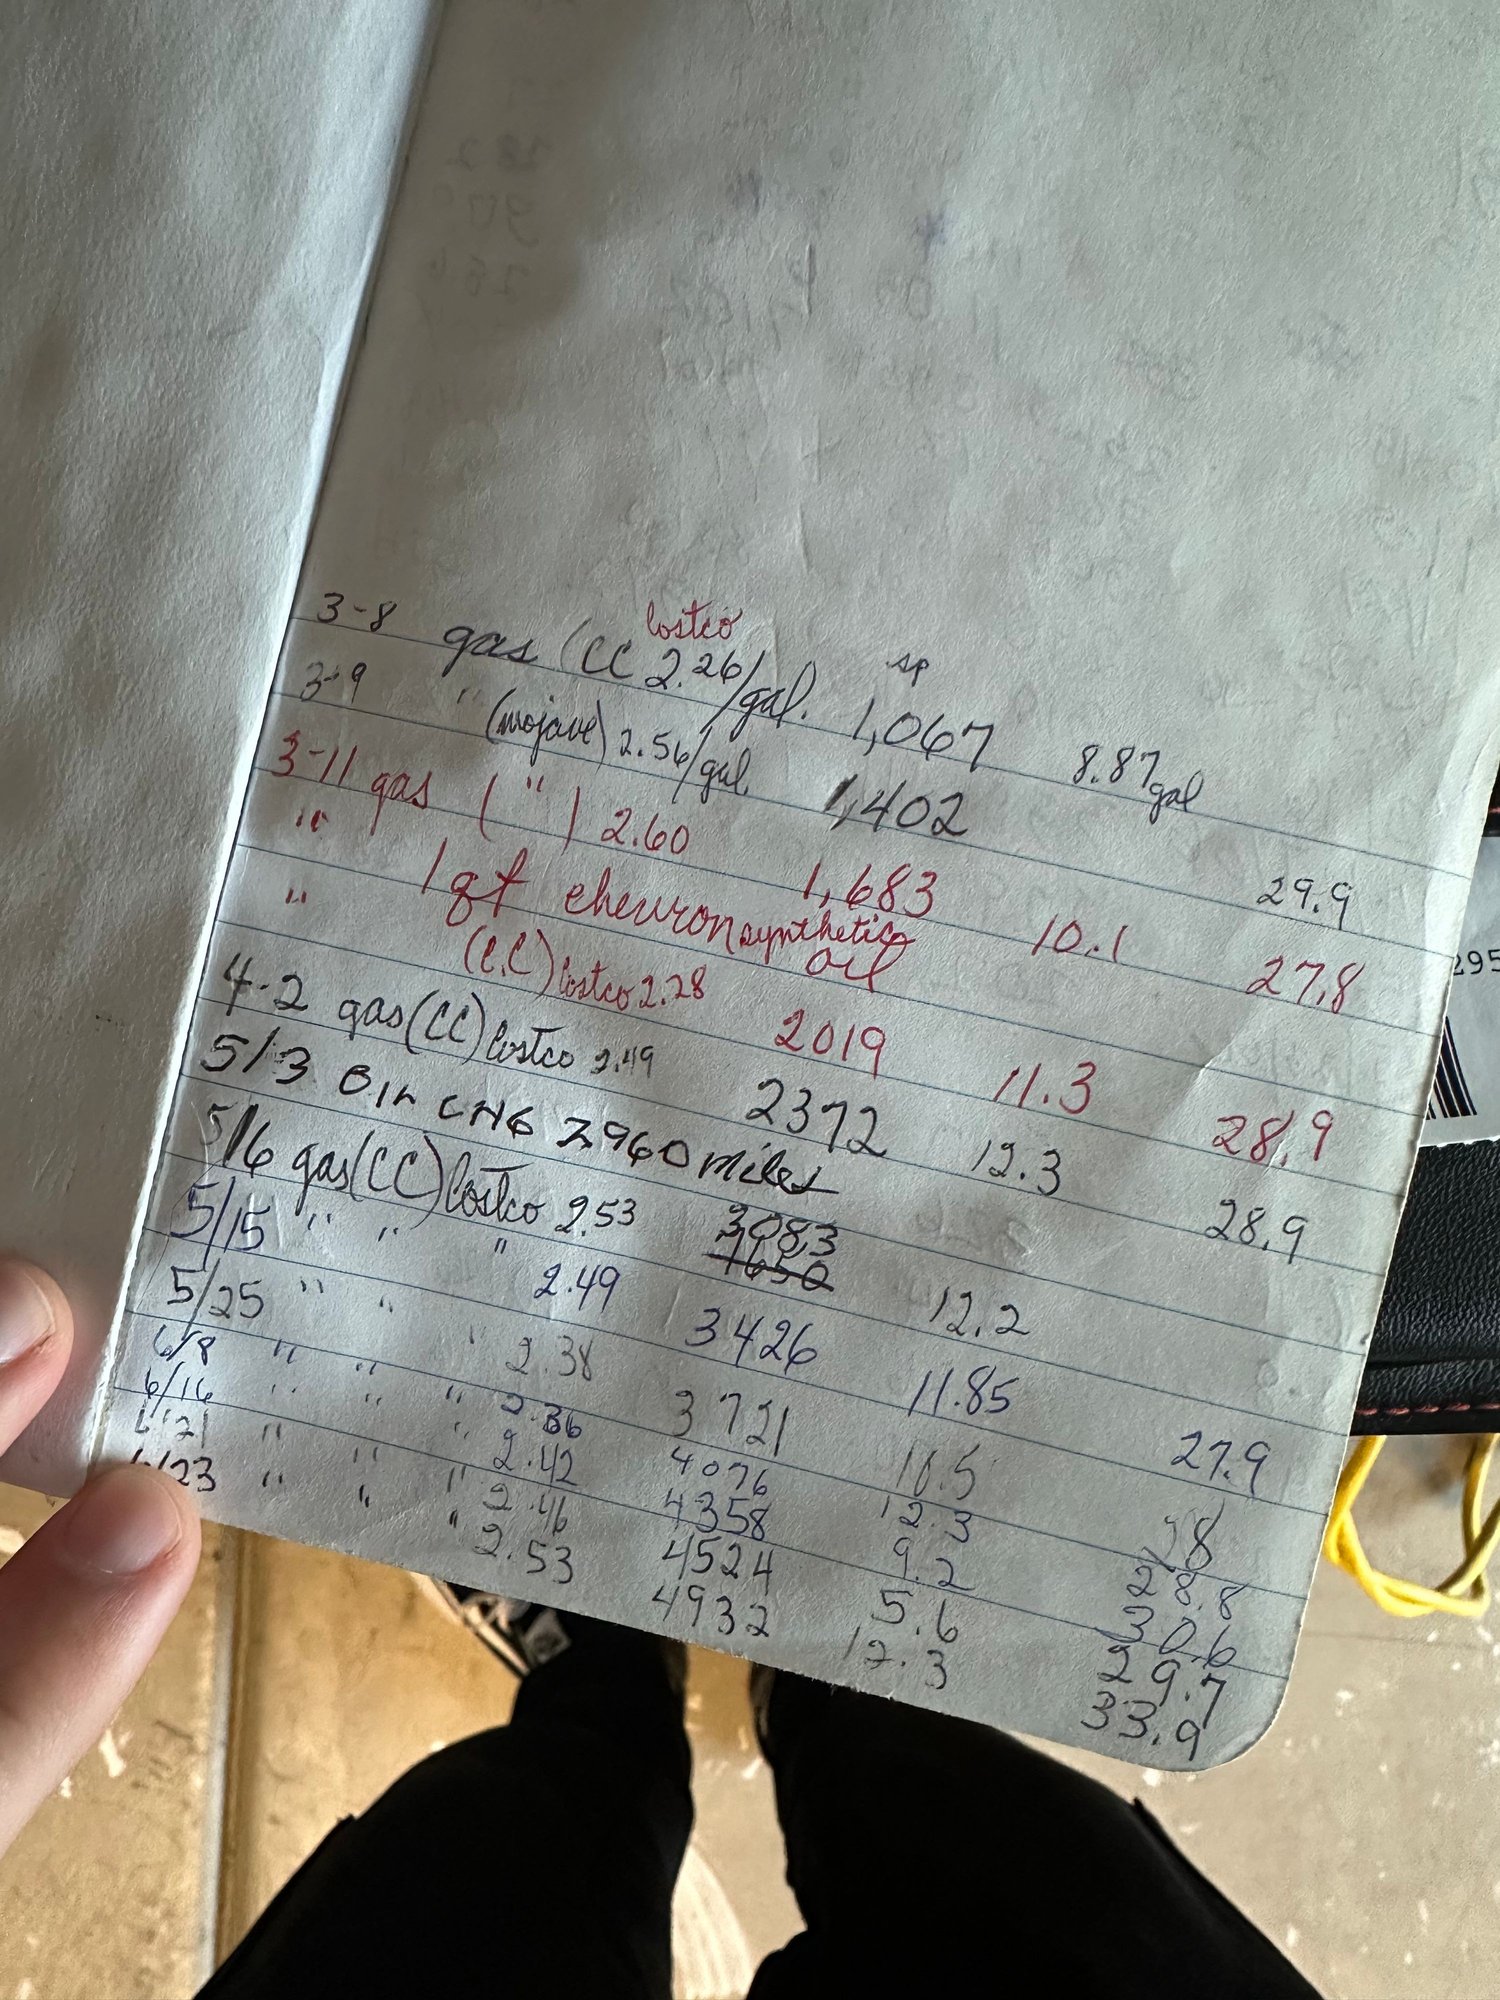 3-8 gas (CC Costco 2.26/gal. sp 1,067 8.87 gal
3-9 " (mojave) 2.56/gal. 1,402 29.9
3-11 gas ( " ) 2.60 1,683 10.1 27.8
" 1 qt chevron synthetic oil
" (C.C) Costco 2.28 2019 11.3 28.9
4-2 gas (CC) Costco 2.49 2372 12.3 28.9
5/3 OIL CHG 2960 miles
5/6 gas (CC) Costco 2.53 3083 1650 12.2
5/15 " " " 2.49 3426 11.85 27.9
5/25 " " " 2.38 3721 10.5 28
6/8 " " " 2.36 4076 12.3 28.8
6/16 " " " 2.42 4358 9.2 30.6
6/21 " " " 2.46 4524 5.6 29.7
6/23 " " " 2.53 4932 12.3 33.9
295